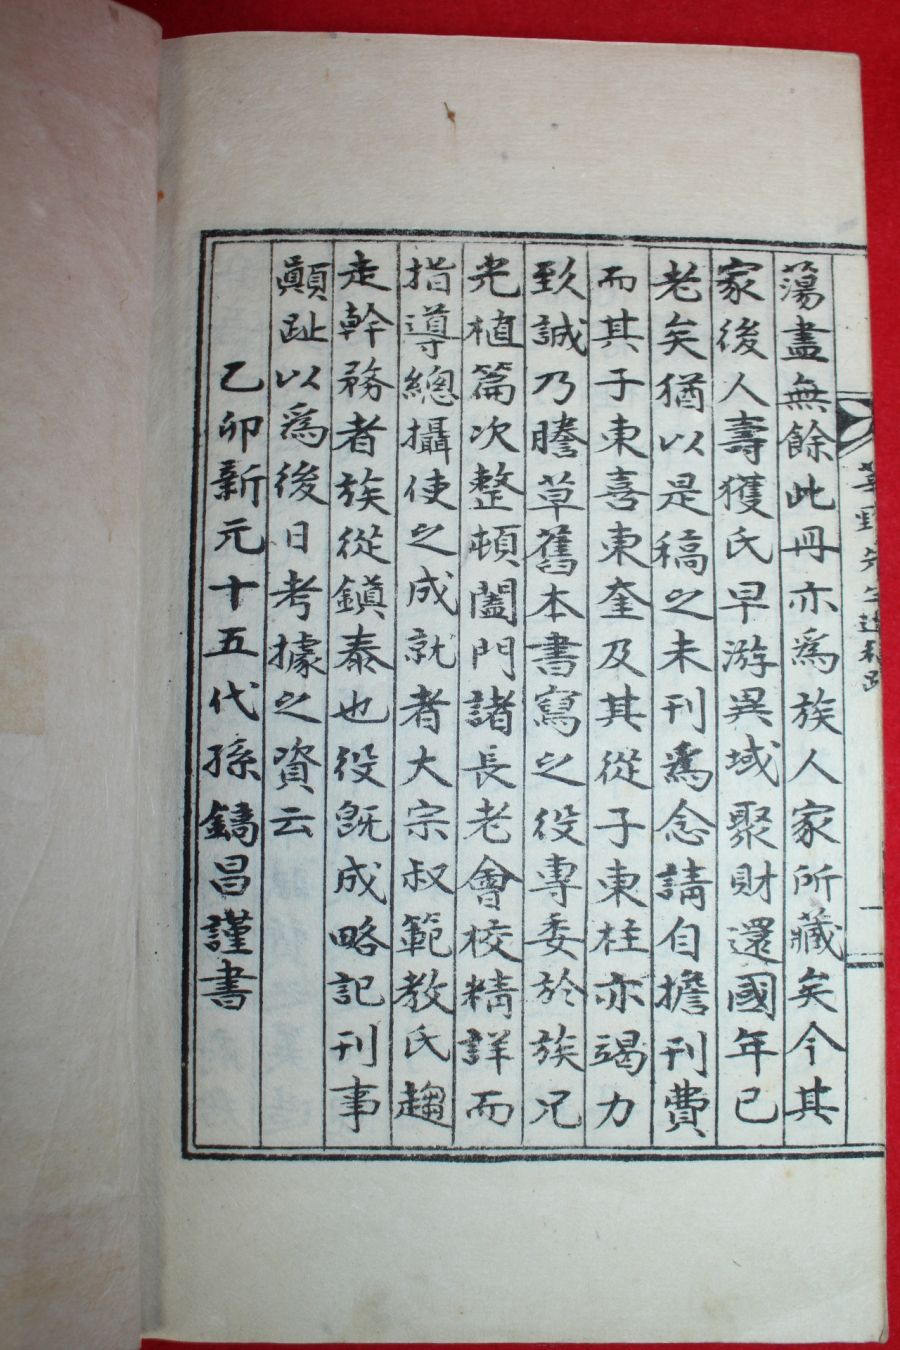 蕩盡無餘此冊亦爲族人家所藏矣今其
家後人壽獲氏早游異域聚財還國年已
老矣猶以是稿之未刊爲念請自擔刊費
而其子東喜東奎及其從子東柱亦竭力
致誠乃謄草舊本書寫之役專委於族兄
光植篇次整頓闔門諸長老會校精詳而
指導總攝使之成就者大宗叔範教氏趨
走幹務者族從鎭泰也役旣成略記刊事
顚趾以爲後日考據之資云
乙卯新元十五代孫鑄昌謹書
先生遺稿跋